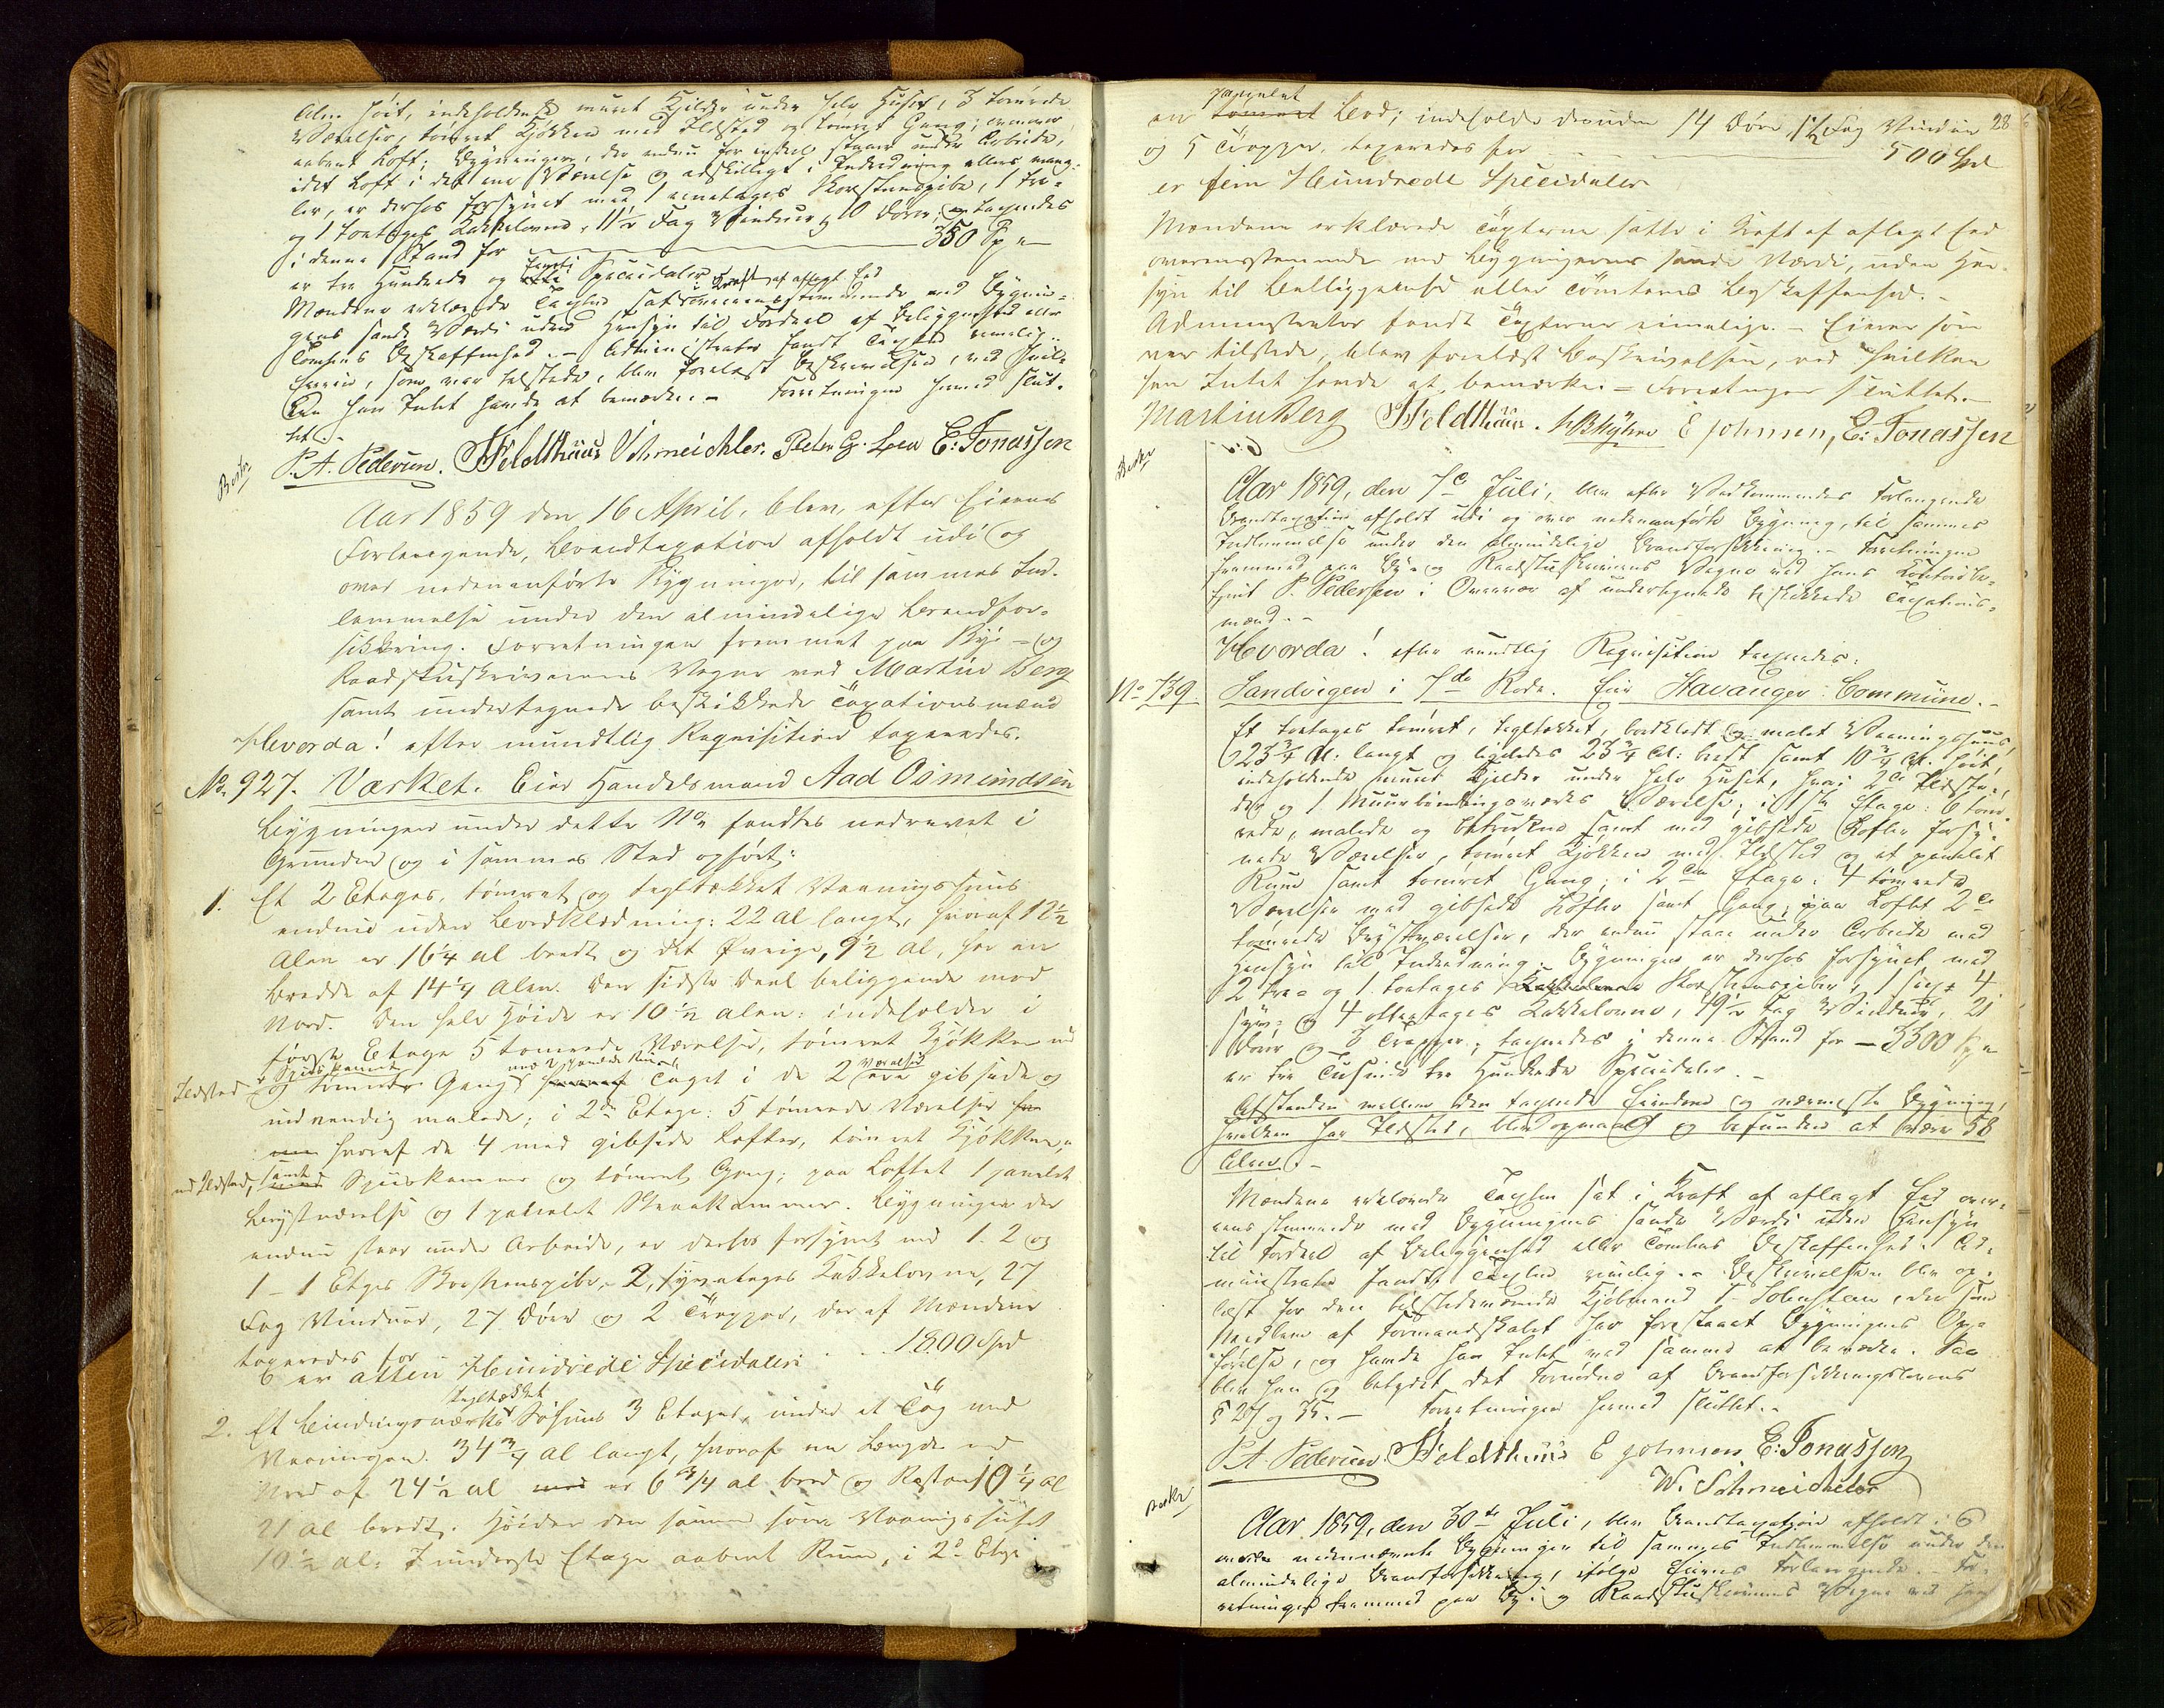 Alen høit, indeholdende muret Kjelder under hele Huset, 3 tømrede
Værelser, tømret Kjøkken med Ildsted og tømret Gang; ovenover
aabent Loft; Bygningen, der endnu for endeel staar under Arbeide,
idet Loft i det ene Værelse og adskilligt i Indredning ellers mang-
ler, er derhos forsynet med 1 eenetages Skorsteenspibe, 1 tre-
og 1 toetages Kakkelovne, 11½ Fag Vinduer, 10 Døre, og taxeredes
i denne Stand for 350 Sp
er tre Hundrede og femti Speciedaler
Mændene erklærede Taxten sat i Kraft af aflagt Eed overeensstemmende med Bygnin-
gens sande Værdi uden Hensyn til Fordeel af Beliggenhed eller
Tomtens Beskaffenhed. - Administrator fandt Taxten rimelig.
Eieren, som var tilstede, blev forelæst Beskrivelsen, ved hvil-
ken han Intet havde at bemærke. - Forretningen hermed slut-
tet. -
P. A. Pedersen. Feldthuus V. Schmeichler. Peter G. Loen E: Jonassen
Beskr
Aar 1859 den 16 April, blev, efter Eierens
Forlangende, Brandtaxation afholdt udi og
over nedenanførte Bygninger, til sammes Ind-
lemmelse under den almindelige Brandfor-
sikkring. Forretningen fremmet paa Byi- og
Raadstuskriverens Vegne ved Martin Berg
samt undertegnede beskikkede Taxationsmænd
Hvorda! efter mundtlig Requisition taxeredes.
No. 927. Værket. Eier Handelsmand Aad Osmundsen
Bygningen under dette No. fandtes nedrevet i
Grunden og i sammes Sted opført:
1. Et 2 Etages, tømret og tegltækket Vaaningshuus
endnu uden Bordklædning: 22 al langt, hvoraf 12½
Alen er 16¼ al bredt og det Øvrige, 9½ al, har en
Bredde af 14¼ Alen. Den sidste Deel beliggende mod
Nord. Den hele Høide er 10½ alen: indeholder i
første Etage 5 tømrede Værelser, tømret Kjøkken m
Ildsted, Spiiskammer og tømret Gang med 2 panelede Rum, Taget i de 2 Værelser gibsede og
indvendig malede; i 2den Etage: 5 tømrede Værelser
hvoraf de 4 med gibsede Lofter, tømret Kjøkken
med Ildsted, samt Spiiskammer og tømret Gang; paa Loftet 1 panelet
Qvistværelse og 1 panelet Skraakammer. Bygningen der
endnu staar under Arbeide, er derhos forsynet med 1. 2 og
1 - 1 Etages Skorsteenspibe, 2, fyretages Kakkelovne, 27
Fag Vinduer, 27 Døre og 2 Trapper, der af Mændene
taxeredes for 1800 Spd
er atten Hundrede Speciedaler
2. Et Bindingsværks tegltækket Søhuus 3 Etages, under et Tag med
Vaaningen. 34¾ al langt, hvoraf en Længde mod
Nord af 24½ al er 6¾ al bred og Resten 10¼ al
21 al bredt. Høiden den samme som Vaaningshuset
10½ al: I underste Etage aabent Rum, i 2den Etage
28
en panelet Bod; indeholder desuden 14 Døre, 1½ Fag Vinduer
og 5 Trapper, taxeredes for 500 Spd
er fem Hundrede Speciedaler
Mændene erklærede Taxterne satte i Kraft af aflagt Eed
overensstemmende med Bygningernes sande Værdi, uden Hen-
syn til Beliggenhed eller Tomternes Beskaffenhed. -
Administrator fandt Taxterne rimelige. - Eieren som
var tilstede, blev forelæst Beskrivelsen, ved hvilken
han Intet havde at bemærke. = Forretningen sluttet. -
Martin Berg Feldthuus. E Johnsen, E: Jonassen
Beskr
Aar 1859, den 7de Juli, blev efter Vedkommendes Forlangende
Brandtaxation afholdt udi og over nedenanførte Bygning, til sammes
Indlemmelse under den almindelige Brandforsikkring. - Forretningen
fremmed paa By- og Raadstueskriverens Vegne ved hans Kontoirbe-
tjent P. Pedersen i Overvær af undertegnede beskikkede Taxations-
mænd. -
Hvorda! efter mundtlig Requisition taxeredes:
No. 739. Sandvigen i 7de Rode. Eier Stavanger Commune. -
Et toetages tømret, tegltækket, bordklædt og malet Vaaningshuus,
23¾ Al: langt og ligeledes 23¾ Al: bredt samt 10¾ Al: høit,
indeholdende muret Kjelder under hele Huset, hvori 2de Ildste-
der og 1 Muurbindingsværks Værelse; i 1ste Etage: 6 tøm-
rede, malede og betrukne samt med gibsede Lofter forsy-
nede Værelser, tømret Kjøkken med Ildsted og et panelet
Rum samt tømret Gang; i 2den Etage: 4 tømrede
Værelser med gibsede Lofter samt Gang; paa Loftet 2de
tømrede Qvistværelser, der endnu staar under Arbeide med
Hensyn til Indredning. Bygningen er derhos forsynet med
2 tre- og 1 toetages Skorsteenspiber, 1 sex- 4
fyre- og 4 otteetages Kakkelovne, 49½ Fag Vinduer, 21
Døre og 3 Trapper; taxeredes i denne Stand for - 3300 Sp
er tre Tusinde tre Hundrede Speciedaler. -
Afstanden mellem den taxerede Eiendom og nærmeste Bygning,
hvilken har Ildsted, blev opmaalt og befunden at være 58
Alen. -
Mændene erklærede Taxten sat i Kraft af aflagt Eed over-
eensstemmende med Bygningens sande Værdi uden Hensyn
til Fordeel af Beliggenhed eller Tomtens Beskaffenhed. Ad-
ministrator fandt Taxten rimelig. - Beskrivelsen blev op-
læst for den tilstedeværende Kjøbmand Johnsen, der som
Medlem af Formandskabet har forestaaet Bygningens Op-
førelse, og havde han Intet ved samme at bemærke. Paa
blev han og betydet det Fornødne af Brandforsikkringslovens
§ 28 og 35. - Forretningen hermed sluttet. -
P. A. Pedersen. Feldthuus E Johnsen E: Jonassen
W. Schmeichler
Beskr
Aar 1859, den 30te Juli, blev Brandtaxation afholdt i og
over nedennævnte Bygninger til sammes Indlemmelse under den
almindelige Brandforsikkring, ifølge Eierens Forlangende. For-
retningen fremmed paa By- og Raadstueskriverens Vegne ved hans